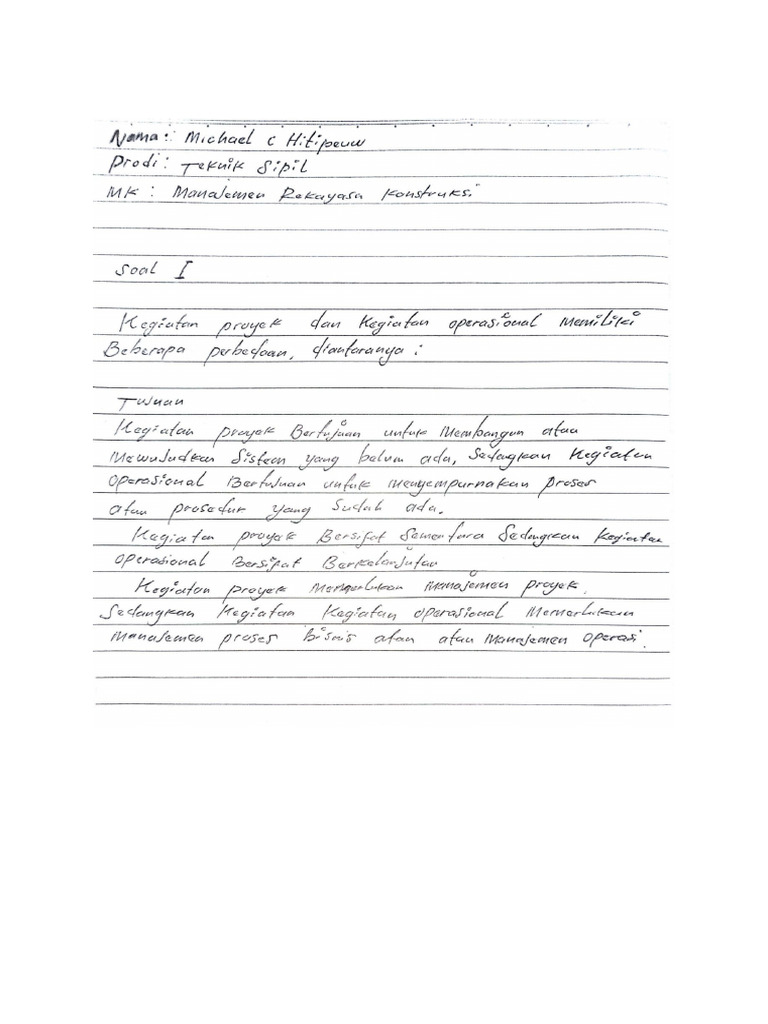 Nama: Michael C Hitipeuw
Prodi: Teknik Sipil
MK: Manajemen Rekayasa Konstruksi
Soal I
Kegiatan proyek dan Kegiatan operasional Memiliki
Beberapa perbedaan, diantaranya:
Tujuan
Kegiatan proyek Bertujuan untuk Membangun atau
Mewujudkan Sistem yang belum ada, Sedangkan Kegiatan
operasional Bertujuan untuk menyempurnakan proses
atau prosedur yang Sudah ada.
Kegiatan proyek Bersifat Sementara Sedangkan Kegiatan
operasional Bersifat Berkelanjutan
Kegiatan proyek Memerlukan Manajemen proyek.
Sedangkan Kegiatan Kegiatan operasional Memerlukan
Manajemen proses bisnis atau atau Manajemen operasi.